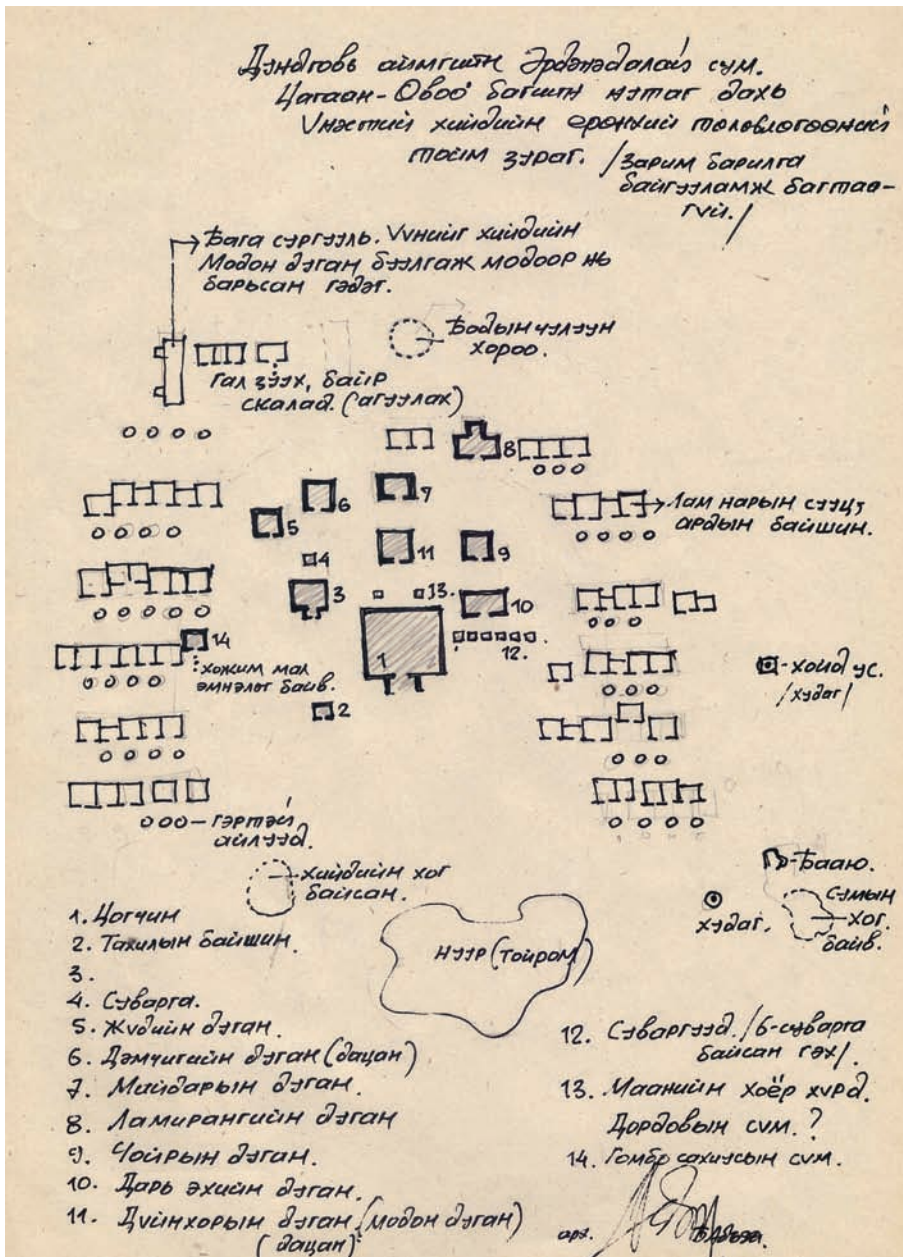 Дундговь аймгийн Эрдэнэдалай сум.
Цагаан-Овоо багийн нутаг дахь
Үнэстий хийдийн ерөнхий төлөвлөгөөний
тойм зураг. /Зарим барилга
байгууламж багтаа-
гүй./
Бага сургууль. Үүнийг хийдийн
Модон дуган буулгаж модоор нь
барьсан гэдэг.
Бодын чулуун
хороо.
Гал зуух, байр
склалад. (агуулах)
8
6
7
5
Лам нарын сууц,
ардын байшин.
11
9
4
3
13.
10
14
1
12.
хожим мал
эмнэлэг байв.
хойд ус.
/худаг/
2
гэртэй
айлууд.
Бааю.
хийдийн хог
байсан.
сумын
хог.
байв.
худаг.
нуур (тойром)
1. Цогчин
2. Тахилын байшин.
3.
4. Суварга.
5. Жүдийн дуган.
6. Дэмчигийн дуган (дацан)
7. Майдарын дуган.
8. Ламирангийн дуган
9. Чойрын дуган.
10. Дарь эхийн дуган.
11. Дүйнхорын дуган. (модон дуган)
(дацан)
12. Суваргууд. /6-суварга
байсан гэх/.
13. Маанийн хоёр хүрд.
Дордовын сүм. ?
14. Гомбо сахиусын сүм.
арх.